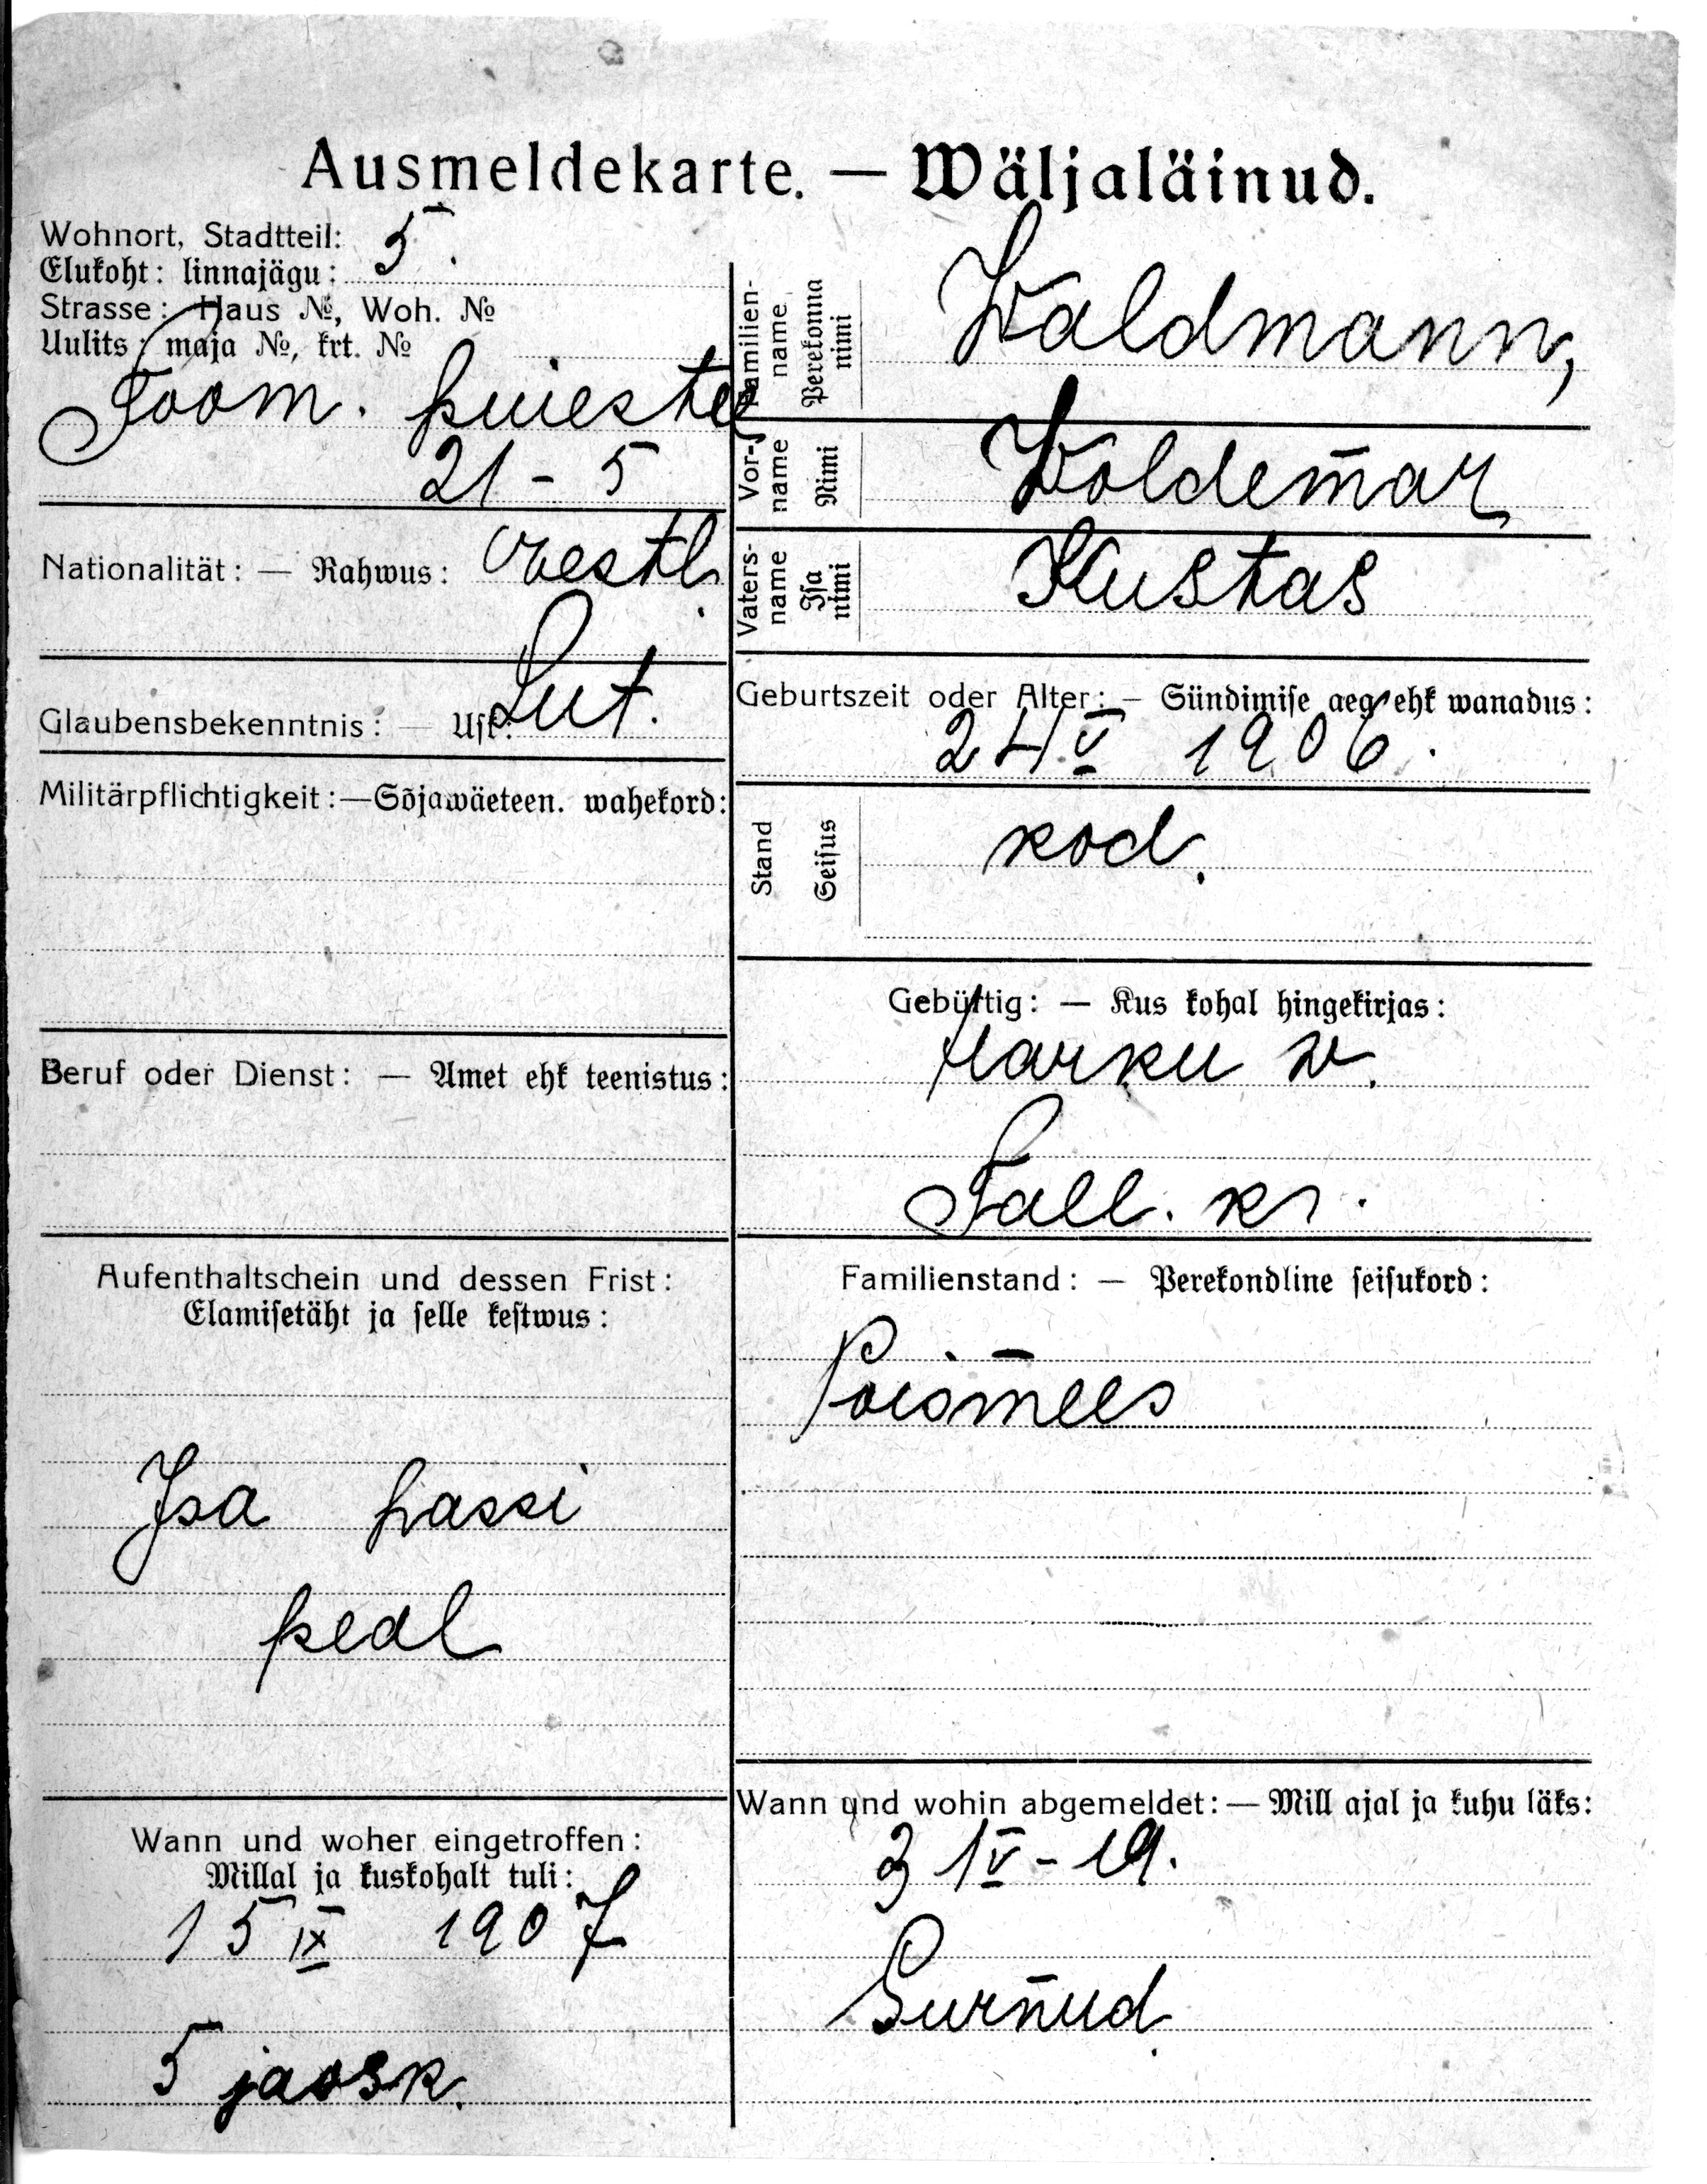 Ausmeldekarte. — Wäljaläinud.
Wohnort, Stadtteil:
Elukoht: linnajägu: 5.
Strasse: Haus №, Woh. №
Uulits: maja №, krt. №
Toom. puiestee
21 - 5
Nationalität: — Rahwus: eestl.
Glaubensbekenntnis: — Usk: Lut.
Militärpflichtigkeit: — Sõjawäeteen. wahekord:
Beruf oder Dienst: — Amet ehk teenistus:
Aufenthaltschein und dessen Frist:
Elamisetäht ja selle kestwus:
Isa passi
peal
Wann und woher eingetroffen:
Millal ja kuskohalt tuli:
15 IX 1907
5 jaosk.
Familien-
name
Perekonna
nimi
Waldmann,
Vor-
name
Nimi
Woldemar
Vaters-
name
Isa
nimi
Kustas
Geburtszeit oder Alter: — Sündimise aeg ehk wanadus:
24 V 1906.
Stand
Seisus
kod.
Gebürtig: — Kus kohal hingekirjas:
Harku w.
Tall. kr.
Familienstand: — Perekondline seisukord:
Poismees
Wann und wohin abgemeldet: — Mill ajal ja kuhu läks:
Surnud